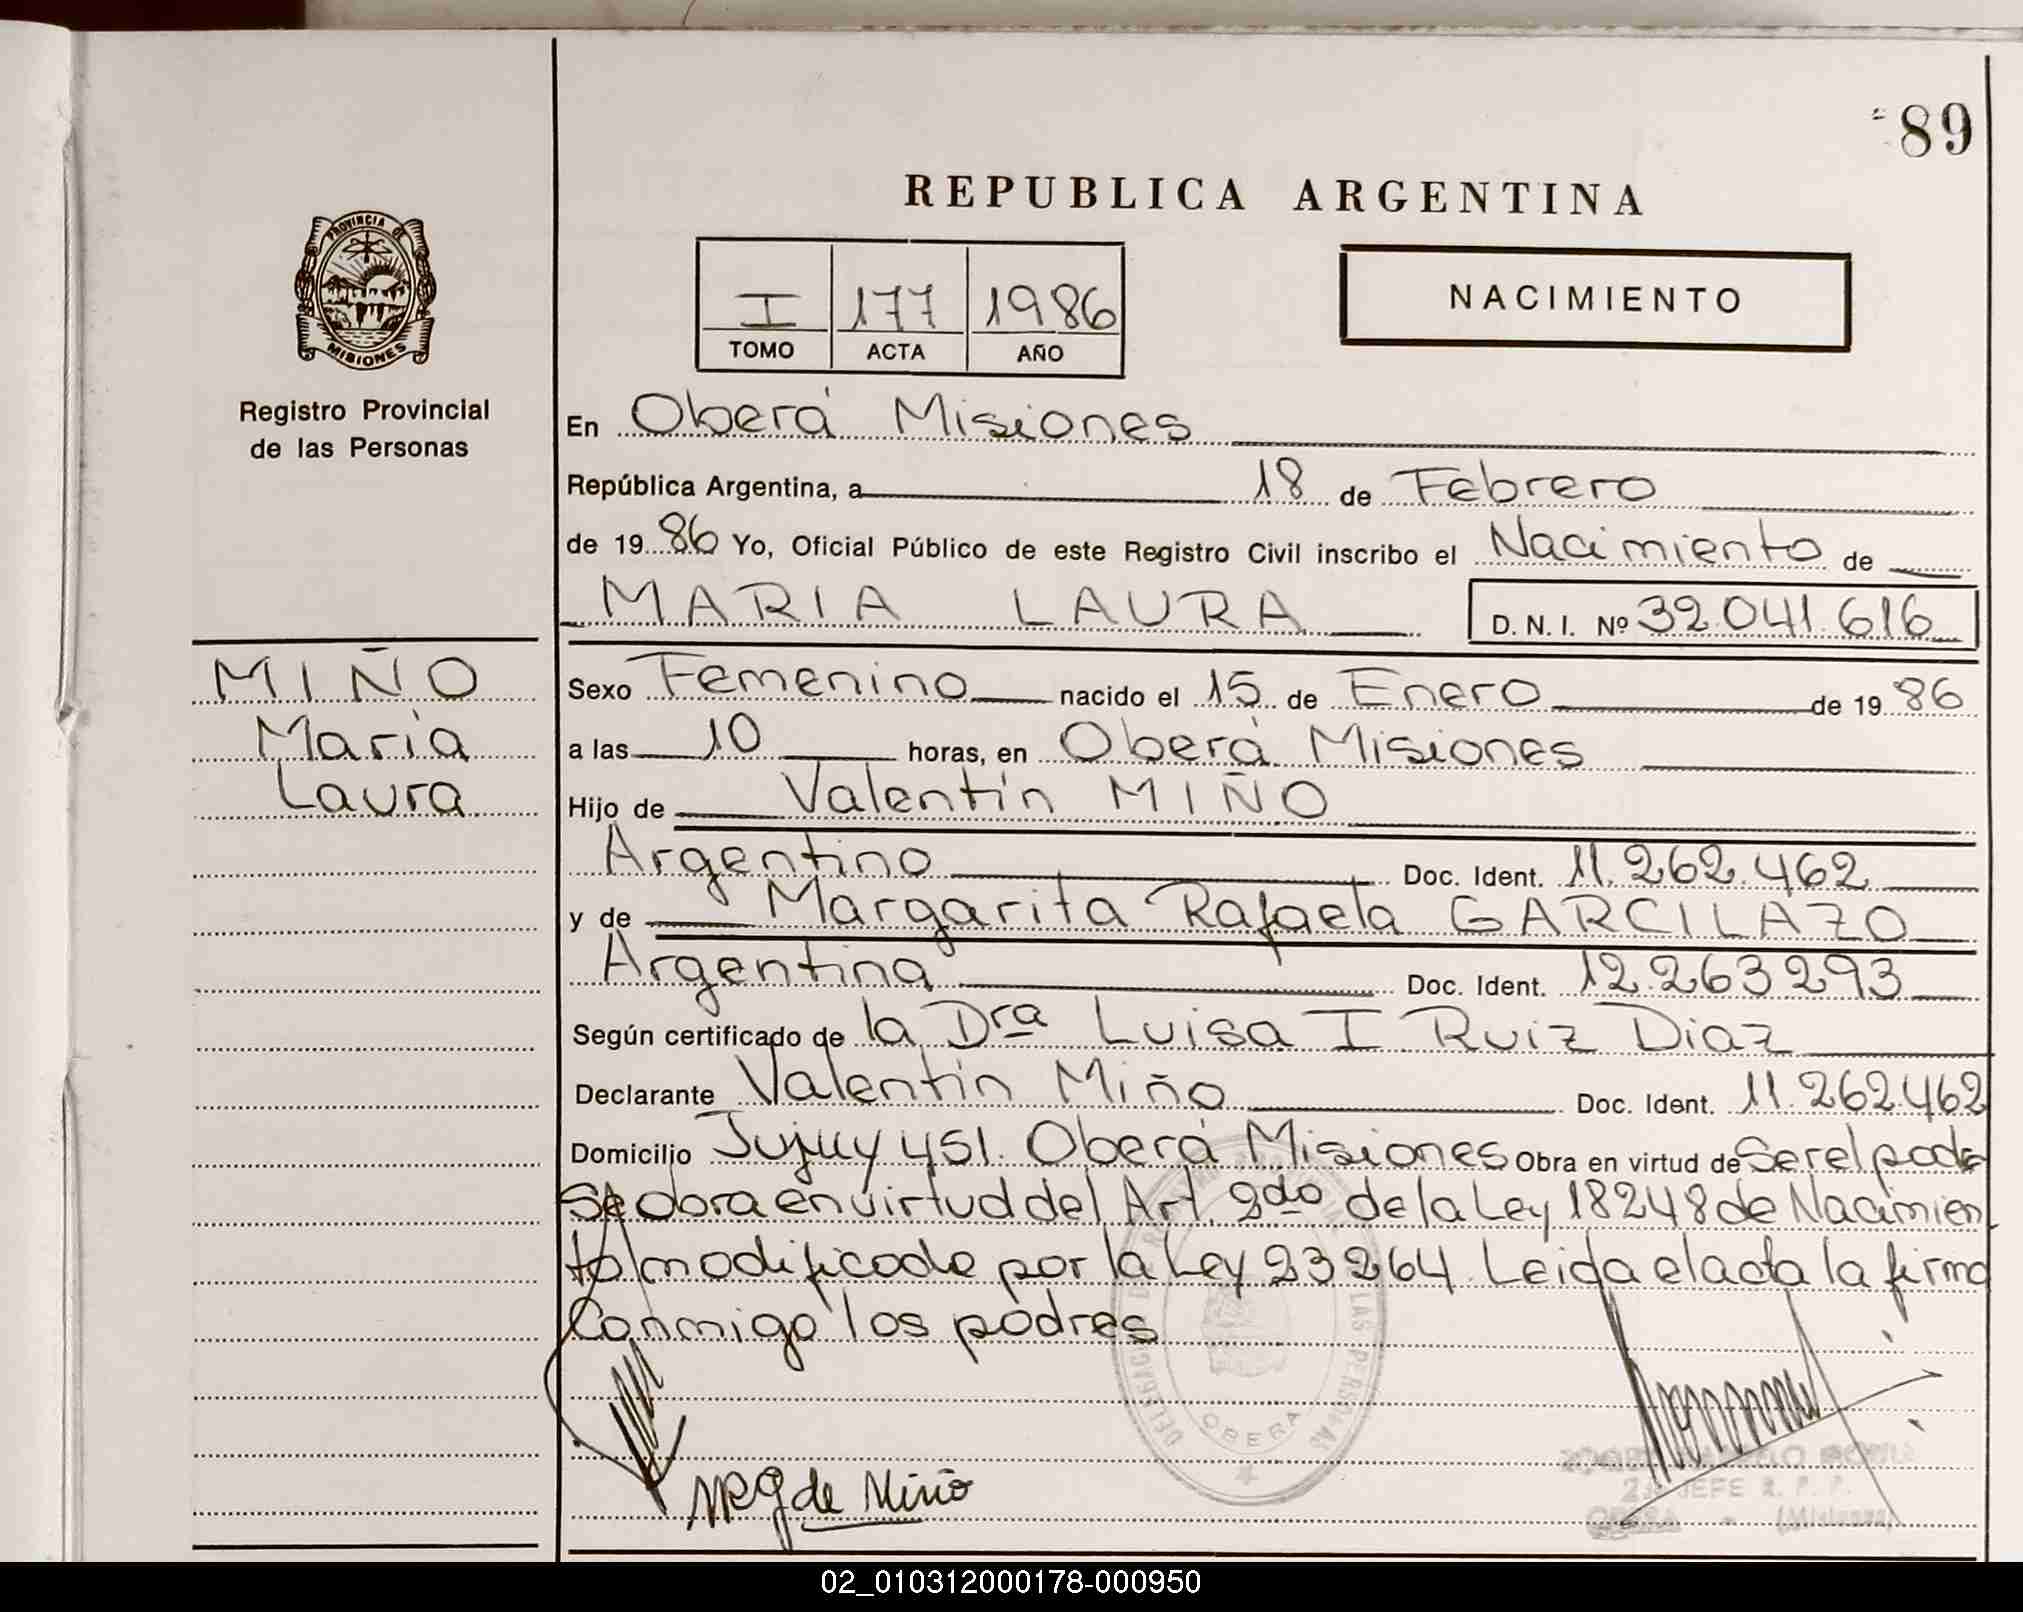 89
REPUBLICA ARGENTINA
PROVINCIA DE
MISIONES
Registro Provincial
de las Personas
I 177 1986
TOMO ACTA AÑO
NACIMIENTO
En Oberá Misiones
República Argentina, a 18 de Febrero
de 1986 Yo, Oficial Público de este Registro Civil inscribo el Nacimiento de
MARIA LAURA D. N. I. Nº 32.041.616
MIÑO
Maria
Laura
Sexo Femenino nacido el 15 de Enero de 1986
a las 10 horas, en Oberá Misiones
Hijo de Valentín MIÑO
Argentino Doc. Ident. 11.262.462
y de Margarita Rafaela GARCILAZO
Argentina Doc. Ident. 12.263293
Según certificado de la Dra Luisa I Ruiz Diaz
Declarante Valentín Miño Doc. Ident. 11.262.462
Domicilio Jujuy 451. Oberá Misiones Obra en virtud de Ser el padre
Se obra en virtud del Art. 2do de la Ley 18248 de Nacimien
to modificada por la Ley 23264. Leida el acta la firma
Conmigo los padres
DELEGACI LAS PERSONAS
OBERA
MRG de Miño
2 JEFE R. P. P.
OBERA - (Misiones)
02_010312000178-000950